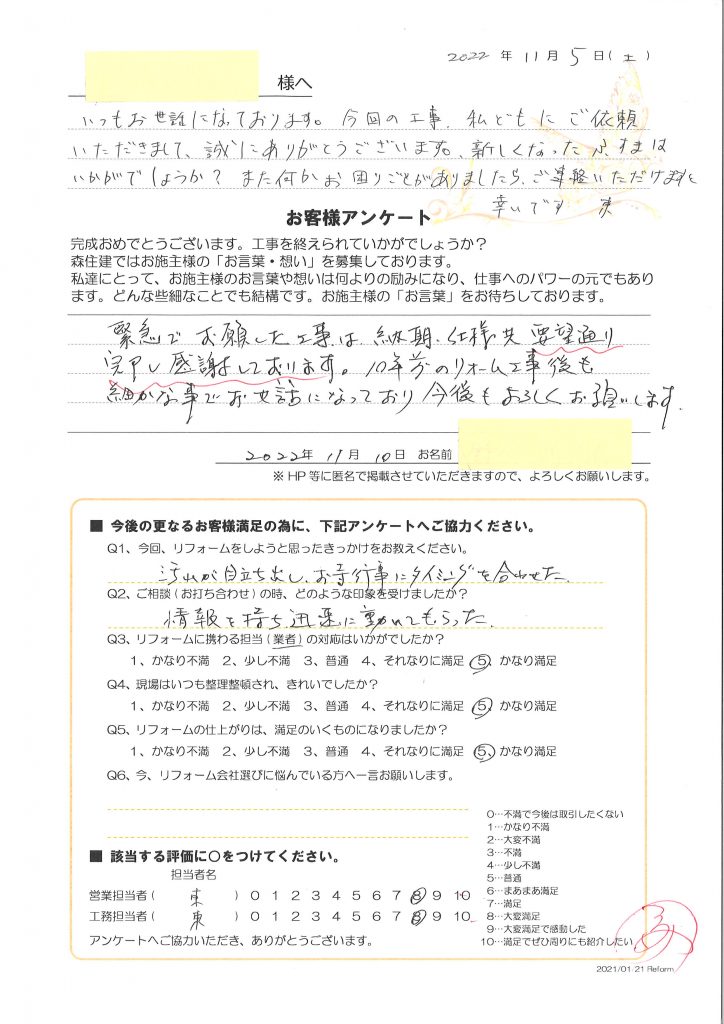 2022 年 11 月 5 日(土)
様へ
いつもお世話になっております。今回の工事、私どもにご依頼
いただきまして、誠にありがとうございます。新しくなったふすまは
いかがでしょうか？ また何かお困りごとがありましたら、ご連絡いただけますと
幸いです 東
お客様アンケート
完成おめでとうございます。工事を終えられていかがでしょうか？
森住建ではお施主様の「お言葉・想い」を募集しております。
私達にとって、お施主様のお言葉や想いは何よりの励みになり、仕事へのパワーの元でもあり
ます。どんな些細なことでも結構です。お施主様の「お言葉」をお待ちしております。
緊急でお願した工事は、納期、仕様共 要望通り
完了し感謝しております。10年前のリフォーム工事後も
細かな事でお世話になっており 今後もよろしくお願いします。
2022年 11月 10日 お名前
※HP 等に匿名で掲載させていただきますので、よろしくお願いします。
■ 今後の更なるお客様満足の為に、下記アンケートへご協力ください。
Q1、今回、リフォームをしようと思ったきっかけをお教えください。
汚れが目立ち出し、お寺行事にタイミングを合わせた。
Q2、ご相談(お打ち合わせ)の時、どのような印象を受けましたか？
情報を持ち迅速に動いてもらった。
Q3、リフォームに携わる担当(業者)の対応はいかがでしたか？
1、かなり不満 2、少し不満 3、普通 4、それなりに満足 5、かなり満足
Q4、現場はいつも整理整頓され、きれいでしたか？
1、かなり不満 2、少し不満 3、普通 4、それなりに満足 5、かなり満足
Q5、リフォームの仕上がりは、満足のいくものになりましたか？
1、かなり不満 2、少し不満 3、普通 4、それなりに満足 5、かなり満足
Q6、今、リフォーム会社選びに悩んでいる方へ一言お願いします。
■ 該当する評価に〇をつけてください。
担当者名
営業担当者( 東 ) 0 1 2 3 4 5 6 7 8 9 10
工務担当者( 東 ) 0 1 2 3 4 5 6 7 8 9 10
アンケートへご協力いただき、ありがとうございます。
0…不満で今後は取引したくない
1…かなり不満
2…大変不満
3…不満
4…少し不満
5…普通
6…まあまあ満足
7…満足
8…大変満足
9…大変満足で感動した
10…満足でぜひ周りにも紹介したい
2021/01.21 Reform